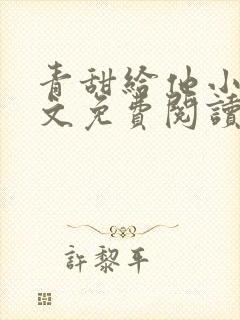 青甜給他小
文免費閱讀
許黎平